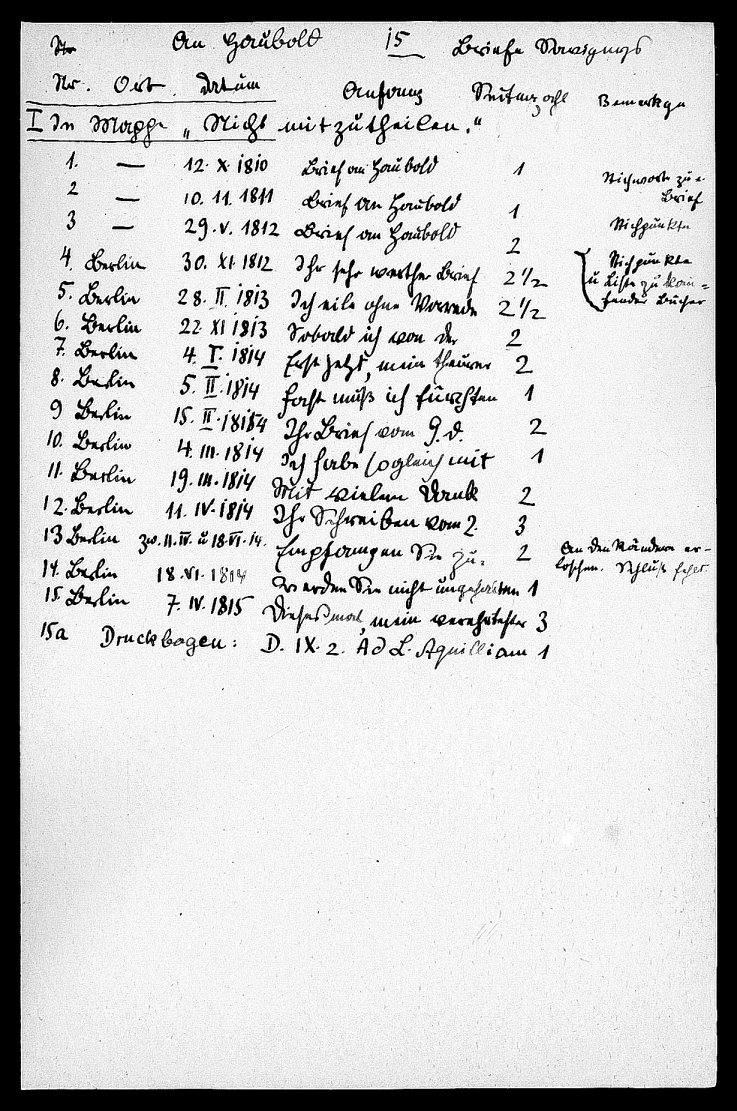 An Haubold 15 Briefe Savignys
Nr. Ort. Datum Anfang Seitenzahl Bemerkgn
I In Mappe „Nichts mitzutheilen."
1. — 12. X. 1810 Brief an Haubold 1 Stichworte zu e. Brief
2 — 10. 11. 1811 Brief an Haubold 1
3 — 29. V. 1812 Brief an Haubold 2 Stichpunkte
4. Berlin 30. XI. 1812 Ihr sehr werther Brief 2 1/2 Stichpunkte
5. Berlin 28. II. 1813 Ich eile ohne Vorrede 2 1/2 u Liste zu kaufender Bücher
6. Berlin 22. XI 1813 Sobald ich von der 2
7. Berlin 4. I. 1814 Erst jetzt, mein theurer 2
8. Berlin 5. II. 1814 Fast muß ich fürchten 1
9 Berlin 15. II. 1814 Ihr Brief vom 9. d. 2
10. Berlin 4. III. 1814 Ich habe sogleich mit 1
11. Berlin 19. III. 1814 Mit vielem Dank 2
12. Berlin 11. IV. 1814 Ihr Schreiben vom 2. 3
13 Berlin zw. 11. IV. u 18. VI. 14. Empfangen Sie zu- 2 An den Rändern er-
loschen. Schluß fehlt
14. Berlin 18. VI. 1814 Werden Sie nicht ungehalten 1
15. Berlin 7. IV. 1815 Diesesmal, mein verehrtester 3
15a Druckbogen: D. IX. 2. Ad L. Aquilliam 1